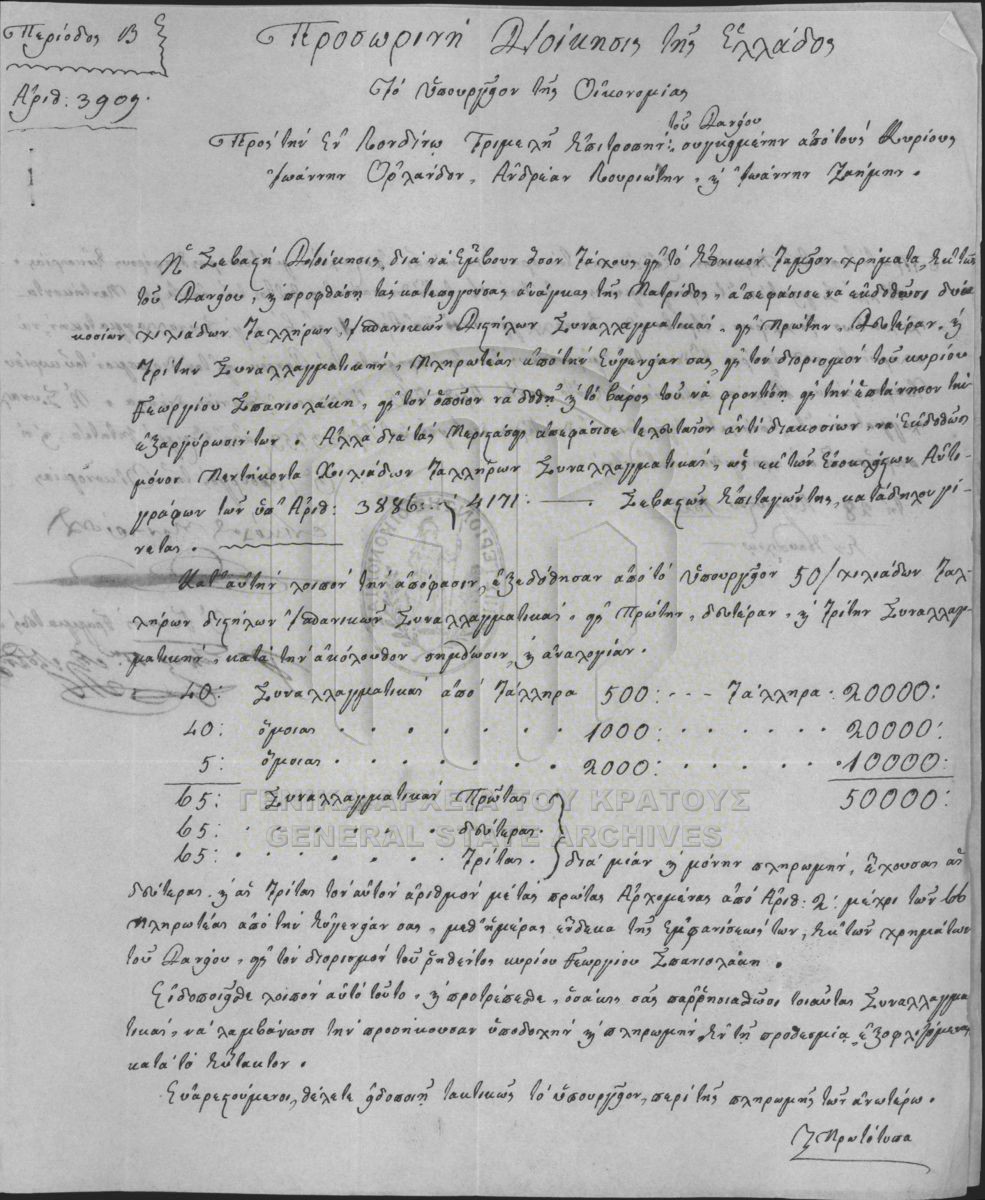 Περίοδος Β
Ἀριθ: 3909.
Προσωρινὴ Διοίκησις τῆς Ἑλλάδος
Τὸ Ὑπουργεῖον τῆς Οἰκονομίας
τοῦ Δανείου
Πρὸς τὴν ἐν Λονδίνῳ Τριμελῆ Ἐπιτροπὴν συγκειμένην ἀπὸ τοὺς Κυρίους
Ἰωάννην Ὀρλάνδον, Ἀνδρέαν Λουριώτην, καὶ Ἰωάννην Ζαήμην.
Ἡ Σεβαστὴ Διοίκησις, διὰ νὰ ἔμβουν ὅσον τάχους εἰς τὸ Ἐθνικὸν Ταμεῖον χρήματα ἐκ τῶν
τοῦ Δανείου, καὶ προφθάσῃ τὰς κατεπειγούσας ἀνάγκας τῆς Πατρίδος, ἀπεφάσισε νὰ ἐκδοθῶσι δια-
κοσίων χιλιάδων Ταλλήρων Ἱσπανικῶν Διστήλων Συναλλαγματικαὶ, εἰς Πρώτην, Δευτέραν, καὶ
Τρίτην Συναλλαγματικὴν, Πληρωτέας ἀπὸ τὴν Εὐγενείαν σας, εἰς τὸν διορισμὸν τοῦ κυρίου
Γεωργίου Σπανιολάκη, εἰς τὸν ὁποῖον νὰ δοθῇ καὶ τὸ βάρος τοῦ νὰ φροντίσῃ εἰς τὴν ἑπτάνησον τὴν
ἐξαργύρωσίν των. Ἀλλὰ διὰ τὰς περιστάσεις ἀπεφάσισε τελευταῖον ἀντὶ διακοσίων, νὰ ἐκδοθῶσι
μόνον Πεντήκοντα Χιλιάδων Ταλλήρων Συναλλαγματικαὶ, ὡς ἐκ τῶν ἐσωκλείστων Ἀντι-
γράφων τῶν ὑπ' Ἀριθ: 3886: καὶ 4171: Σεβαστῶν Ἐπιταγῶν της, κατάδηλον γί-
νεται.
Κατ' αὐτὴν λοιπὸν τὴν ἀπόφασιν, ἐξεδόθησαν ἀπὸ τὸ Ὑπουργεῖον 50/ χιλιάδων Ταλ-
λήρων διστήλων Ἱσπανικῶν Συναλλαγματικαὶ, εἰς Πρώτην, δευτέραν, καὶ Τρίτην Συναλλαγ-
ματικὴν, κατὰ τὴν ἀκόλουθον σημείωσιν, καὶ ἀναλογίαν.
40: Συναλλαγματικαὶ ἀπὸ Τάλληρα 500: - - - Τάλληρα: 20000:
40: ὅμοιας . . . . . . 1000: . . . . . . 20000:
5: ὅμοιας . . . . . . . 2000: . . . . . . 10000:
65: Συναλλαγματικαὶ Πρῶτας 50000:
65: . . . . . . δεύτερας.
65: . . . . . . . Τρίτας. διὰ μίαν καὶ μόνην πληρωμὴν, ἔχουσας αἱ
δεύτερας, καὶ αἱ Τρίτας τὸν αὐτὸν ἀριθμὸν μὲ τὰς πρώτας Ἀρχομένας ἀπὸ Ἀριθ: 2: μέχρι τῶν 66
Πληρωτέας ἀπὸ τὴν Εὐγενείαν σας, μεθ' ἡμέρας ἕνδεκα τῆς ἐμφανίσεώς των, ἐκ τῶν χρημάτων
τοῦ Δανείου, εἰς τὸν διορισμὸν τοῦ ῥηθέντος κυρίου Γεωργίου Σπανιολάκη.
Εἰδοποιεῖσθε λοιπὸν αὐτὸ τοῦτο, καὶ προτρέπεσθε, ὁσάκις σᾶς παῤῥησιασθῶσι τοιαῦτας Συναλλαγμα-
τικαὶ, νὰ λαμβάνωσι τὴν προσήκουσαν ὑποδοχὴν καὶ πληρωμὴν, ἐν τῇ προθεσμίᾳ, ἐξοφλιζόμενας
κατὰ τὸ Εὔτακτον.
Εὐαρεστούμενοι, θέλετε εἰδοποιῇ τακτικῶς τὸ ὑπουργεῖον, περὶ τῆς πληρωμῆς τῶν ἀνωτέρω.
Πρωτότυπα
ΓΕΝΙΚΑ ΑΡΧΕΙΑ ΤΟΥ ΚΡΑΤΟΥΣ
GENERAL STATE ARCHIVES